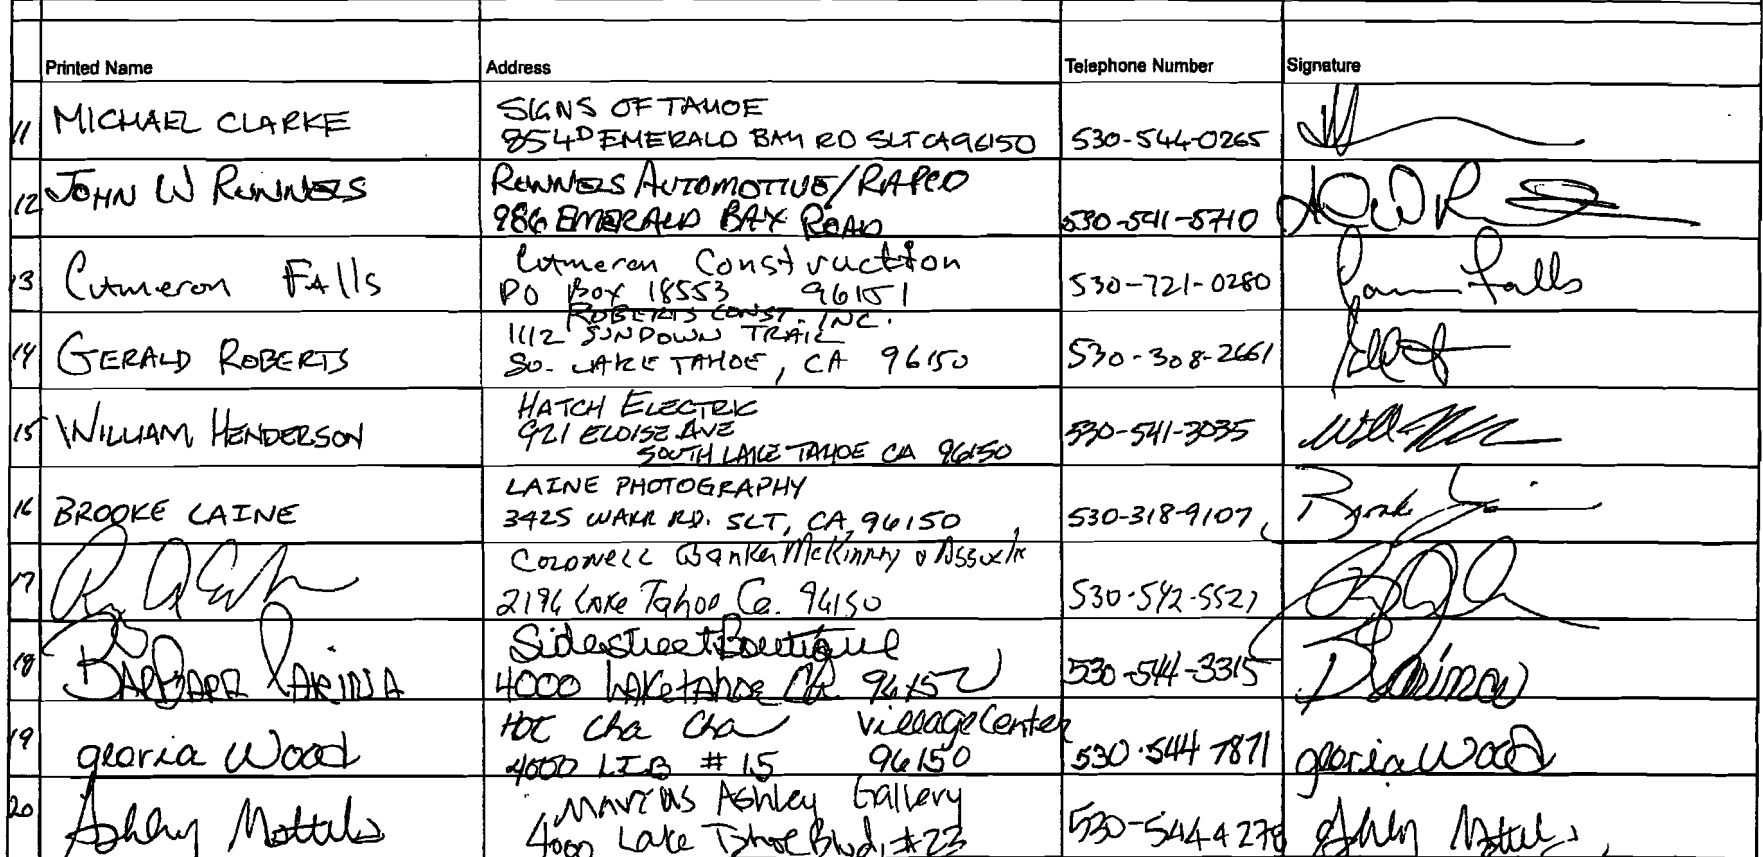 Printed Name Address Telephone Number Signature
11 MICHAEL CLARKE SIGNS OF TAHOE
854D EMERALD BAY RD SLT CA 96150 530-544-0265
12 JOHN W RUNNELS RUNNELS AUTOMOTIVE/RAPCO
986 EMERALD BAY ROAD 530-541-5710
13 Cameron Falls Cameron Construction
PO Box 18553 96151 530-721-0280 Falls
ROBERTS CONST. INC.
14 GERALD ROBERTS 1112 SUNDOWN TRAIL
SO. LAKE TAHOE, CA 96150 530-308-2661
15 WILLIAM HENDERSON HATCH ELECTRIC
921 ELOISE AVE
SOUTH LAKE TAHOE CA 96150 530-541-3035
16 BROOKE LAINE LAINE PHOTOGRAPHY
3425 RD. SLT, CA, 96150 530-318-9107 Brooke
17 COLDWELL Banker McKinney &
2196 Lake Tahoe Ca. 96150 530-542-5527
18 BARBARA LARINA Sidestreet Boutique
4000 LAKE TAHOE 530-544-3315
19 georia Wood HOT Cha Cha Village Center
4000 LTB #15 96150 530-544 7871 georia Wood
20 Ashley Marcus Ashley Gallery
4000 Lake Tahoe Blvd, #23 530-544-4278 Ashley